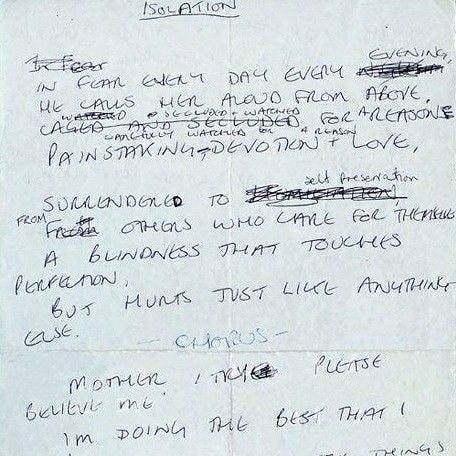 ISOLATION
In Fear
IN FEAR EVERY DAY EVERY EVENING,
HE CALLS HER ALOUD FROM ABOVE,
WATCHED + SECLUDED + WATCHED
CAGED AND SECLUDED, FOR A REASON
CAREFULLY WATCHED FOR A REASON
PAINSTAKING, DEVOTION + LOVE,
self Preservation
SURRENDERED TO
FROM OTHERS WHO CARE FOR THEMSELVES
A BLINDNESS THAT TOUCHES
PERFECTION,
BUT HURTS JUST LIKE ANYTHING
ELSE.
- CHORUS -
MOTHER I TRY PLEASE
BELIEVE ME,
I'M DOING THE BEST THAT I
THINGS